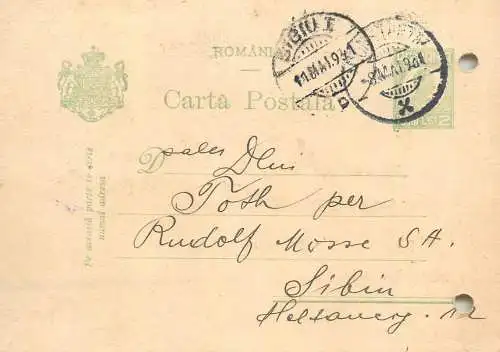 ROMÂNIA
SIBIU I
11 MAI 931
Carta Postala
Pe această parte se scrie
numai adresa
D
Dlui
Toth per
Rudolf Mosse S.A.
Sibiu
Heltauerg. 12